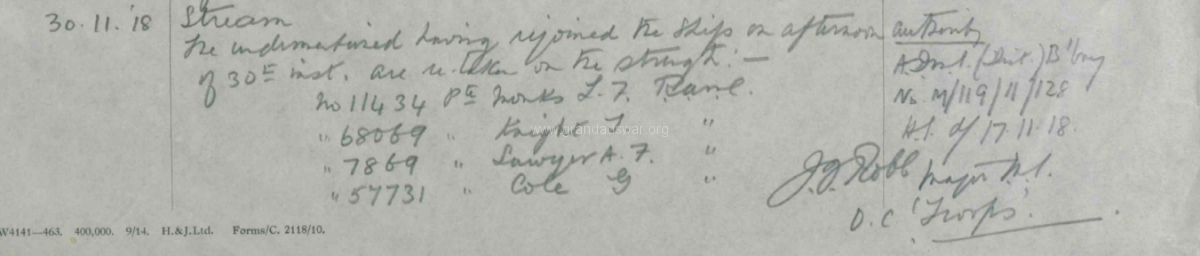 30.11.'18 Stream
The undermentioned having rejoined the ship on afternoon
of 30th inst. are re-taken on the strength. —
No 11434 Pte Monks L. F. R.A.M.C.
" 68069 " Knight T. "
" 7869 " Sawyer A. F. "
" 57731 " Cole G "
authority
No. M/119/11/128
of 17.11.18.
J. J. Robb Major
O.C 'Troops'.
www.grandadswar.org
W4141—463. 400,000. 9/14. H.&J.Ltd. Forms/C. 2118/10.